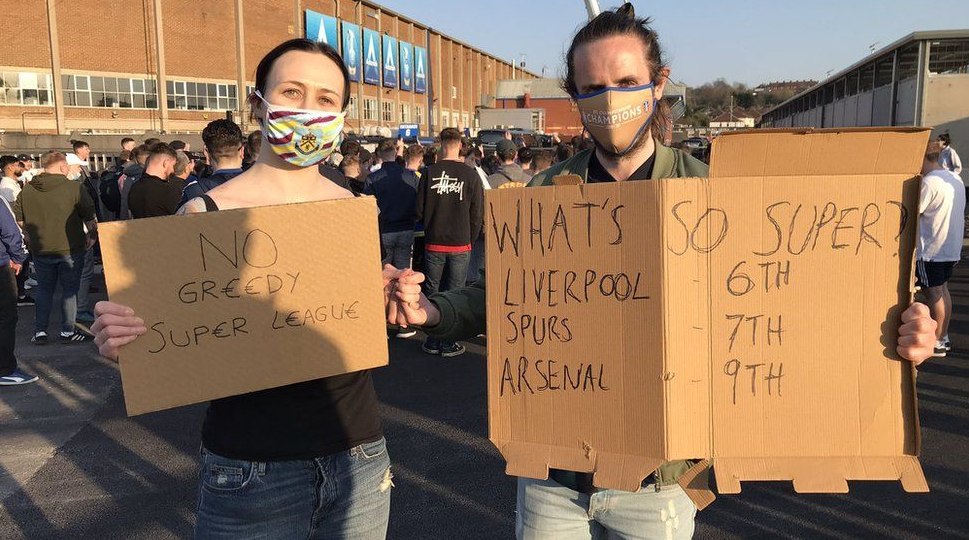 NO
GR€€DY
SUP€R L€AGU€
WHAT'S SO SUPER?
LIVERPOOL - 6TH
SPURS - 7TH
ARSENAL - 9TH
CHAMPIONS